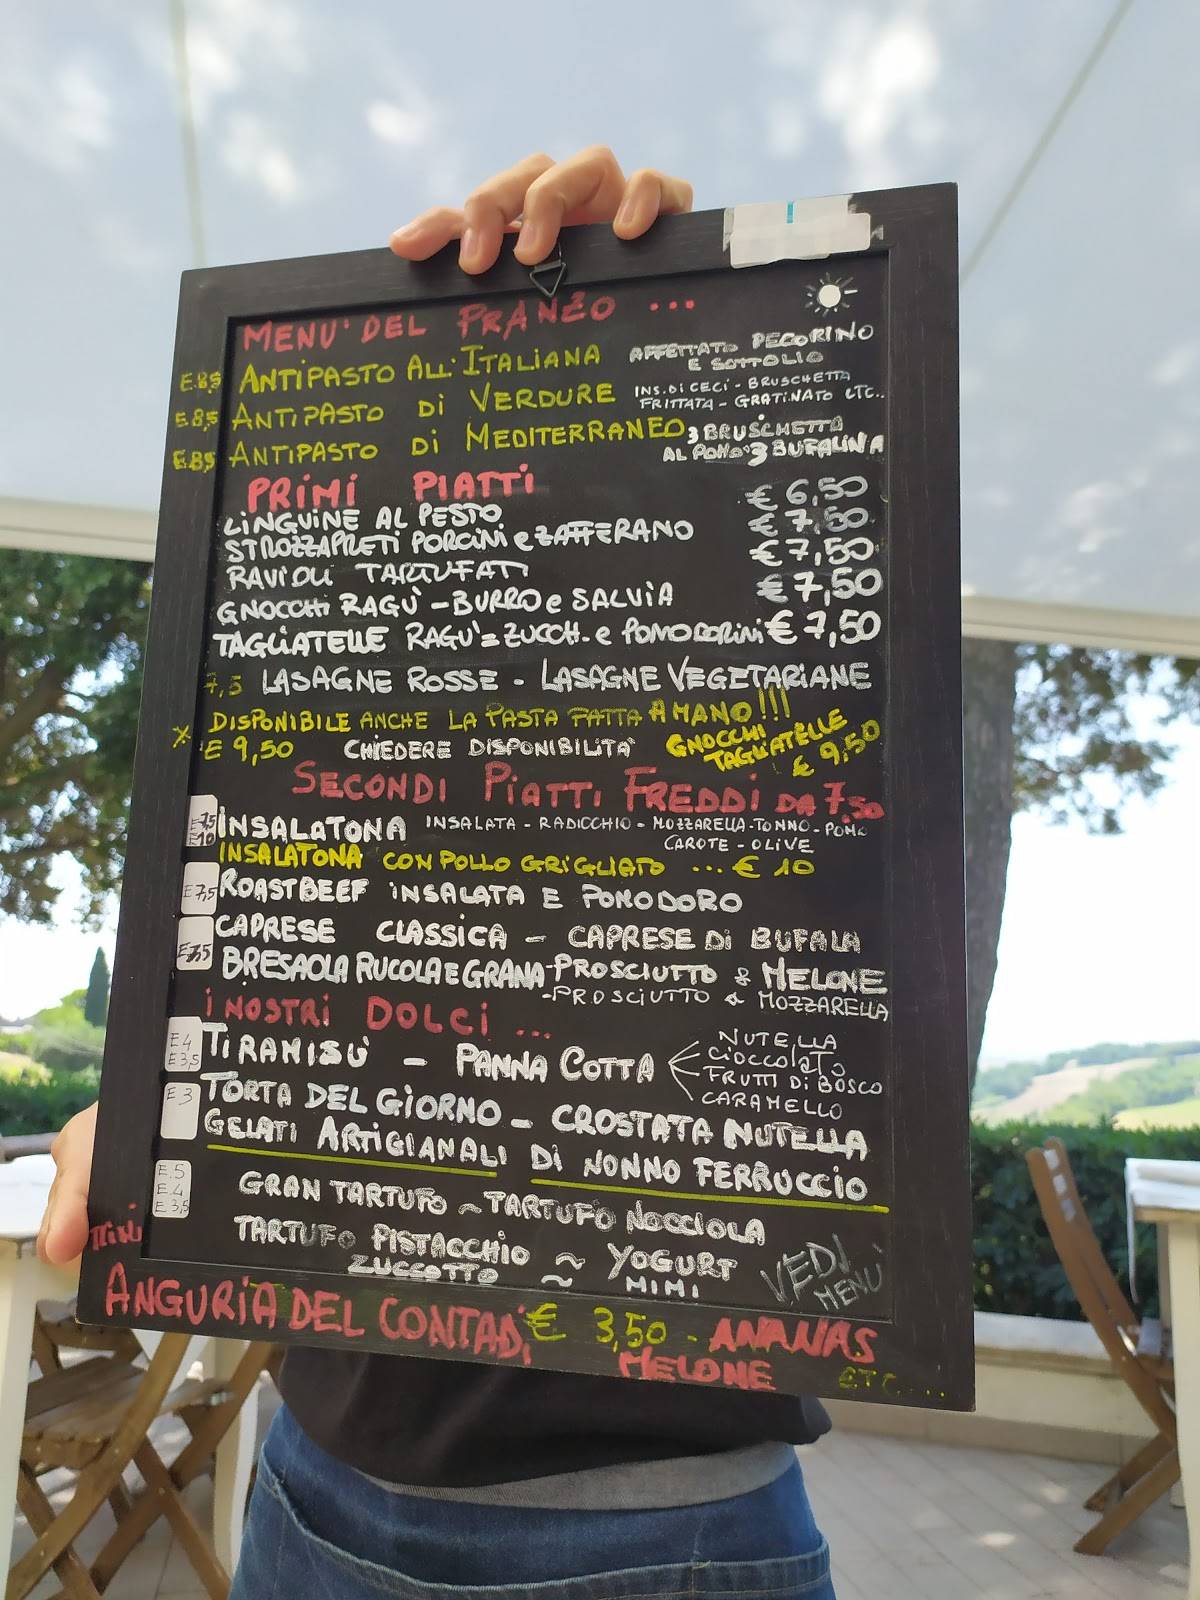 MENU' DEL PRANZO ...
E 8,5 ANTIPASTO ALL'ITALIANA AFFETTATO PECORINO
E SOTTOLIO
E 8,5 ANTIPASTO Di VERDURE INS. Di CECI - BRUSCHETTA
FRITTATA - GRATINATO ETC..
E 8,5 ANTIPASTO Di MEDITERRANEO 3 BRUSCHETTA
AL POMO 3 BUFALINA
PRIMI PIATTI
LINGUINE AL PESTO € 6,50
STROZZAPRETI PORCINI e ZAFFERANO € 7,50
RAVIOLI TARTUFATI € 7,50
GNOCCHI RAGU' - BURRO e SALVIA € 7,50
TAGLIATELLE RAGU' = ZUCCH. e POMODORINI € 7,50
7,5 LASAGNE ROSSE - LASAGNE VEGETARIANE
* DISPONIBILE ANCHE LA PASTA FATTA A MANO!!!
€ 9,50 CHIEDERE DISPONIBILITA' GNOCCHI
TAGLIATELLE
€ 9,50
SECONDI PIATTI FREDDI DA 7,50
E 7,5
E 10
INSALATONA INSALATA - RADICCHIO - MOZZARELLA - TONNO - POMO
CAROTE - OLIVE
INSALATONA CON POLLO GRIGLIATO ... € 10
E 7,5 ROASTBEEF INSALATA E POMODORO
E 7,5 CAPRESE CLASSICA - CAPRESE Di BUFALA
BRESAOLA RUCOLA E GRANA - PROSCIUTTO & MELONE
- PROSCIUTTO & MOZZARELLA
i NOSTRI DOLCI ...
E 4
E 3,5
TIRAMISU' - PANNA COTTA
NUTELLA
CIOCCOLATO
FRUTTI Di BOSCO
CARAMELLO
E 3 TORTA DEL GIORNO - CROSTATA NUTELLA
GELATI ARTIGIANALI DI NONNO FERRUCCIO
E. 5
E. 4
E 3,5
GRAN TARTUFO ~ TARTUFO NOCCIOLA
TARTUFO PISTACCHIO ~ YOGURT
ZUCCOTTO ~ MIMI
VEDI
MENU'
ANGURIA DEL CONTAD. € 3,50 - ANANAS
MELONE ETC....